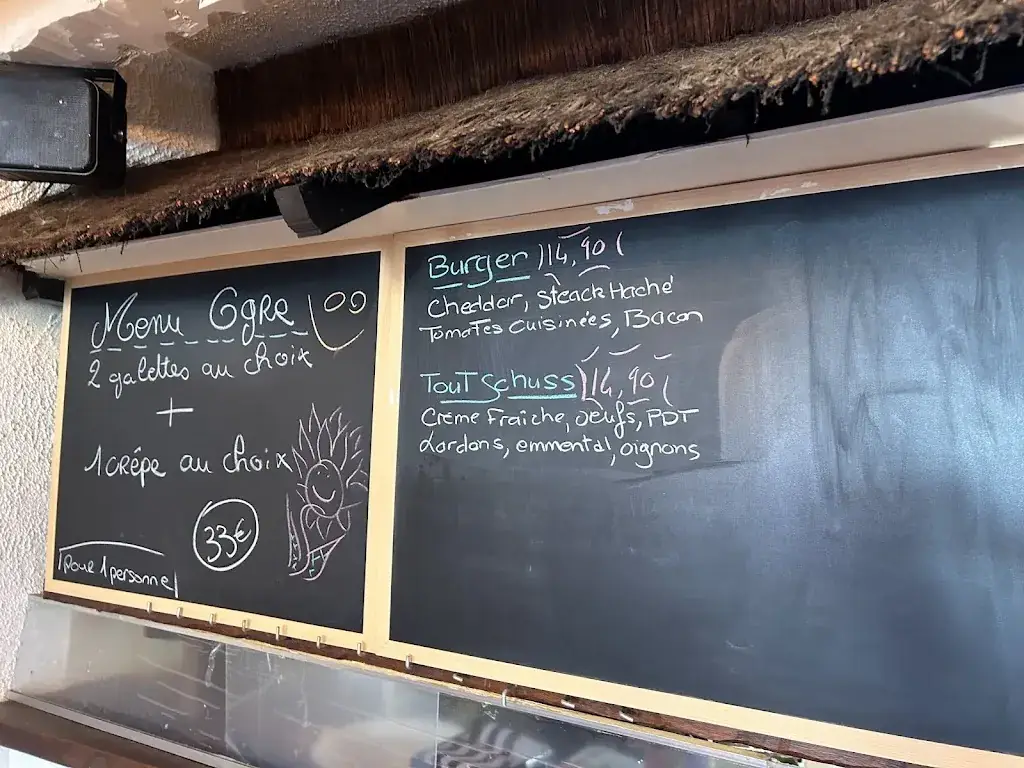 Menu Ogre
2 galettes au choix
+
1 crêpe au choix
33€
pour 1 personne
Burger 14,90
Cheddar, steack Haché
Tomates cuisinées, Bacon
Tout schuss 14,90
Crème Fraîche, oeufs, PDT
Lardons, emmental, oignons